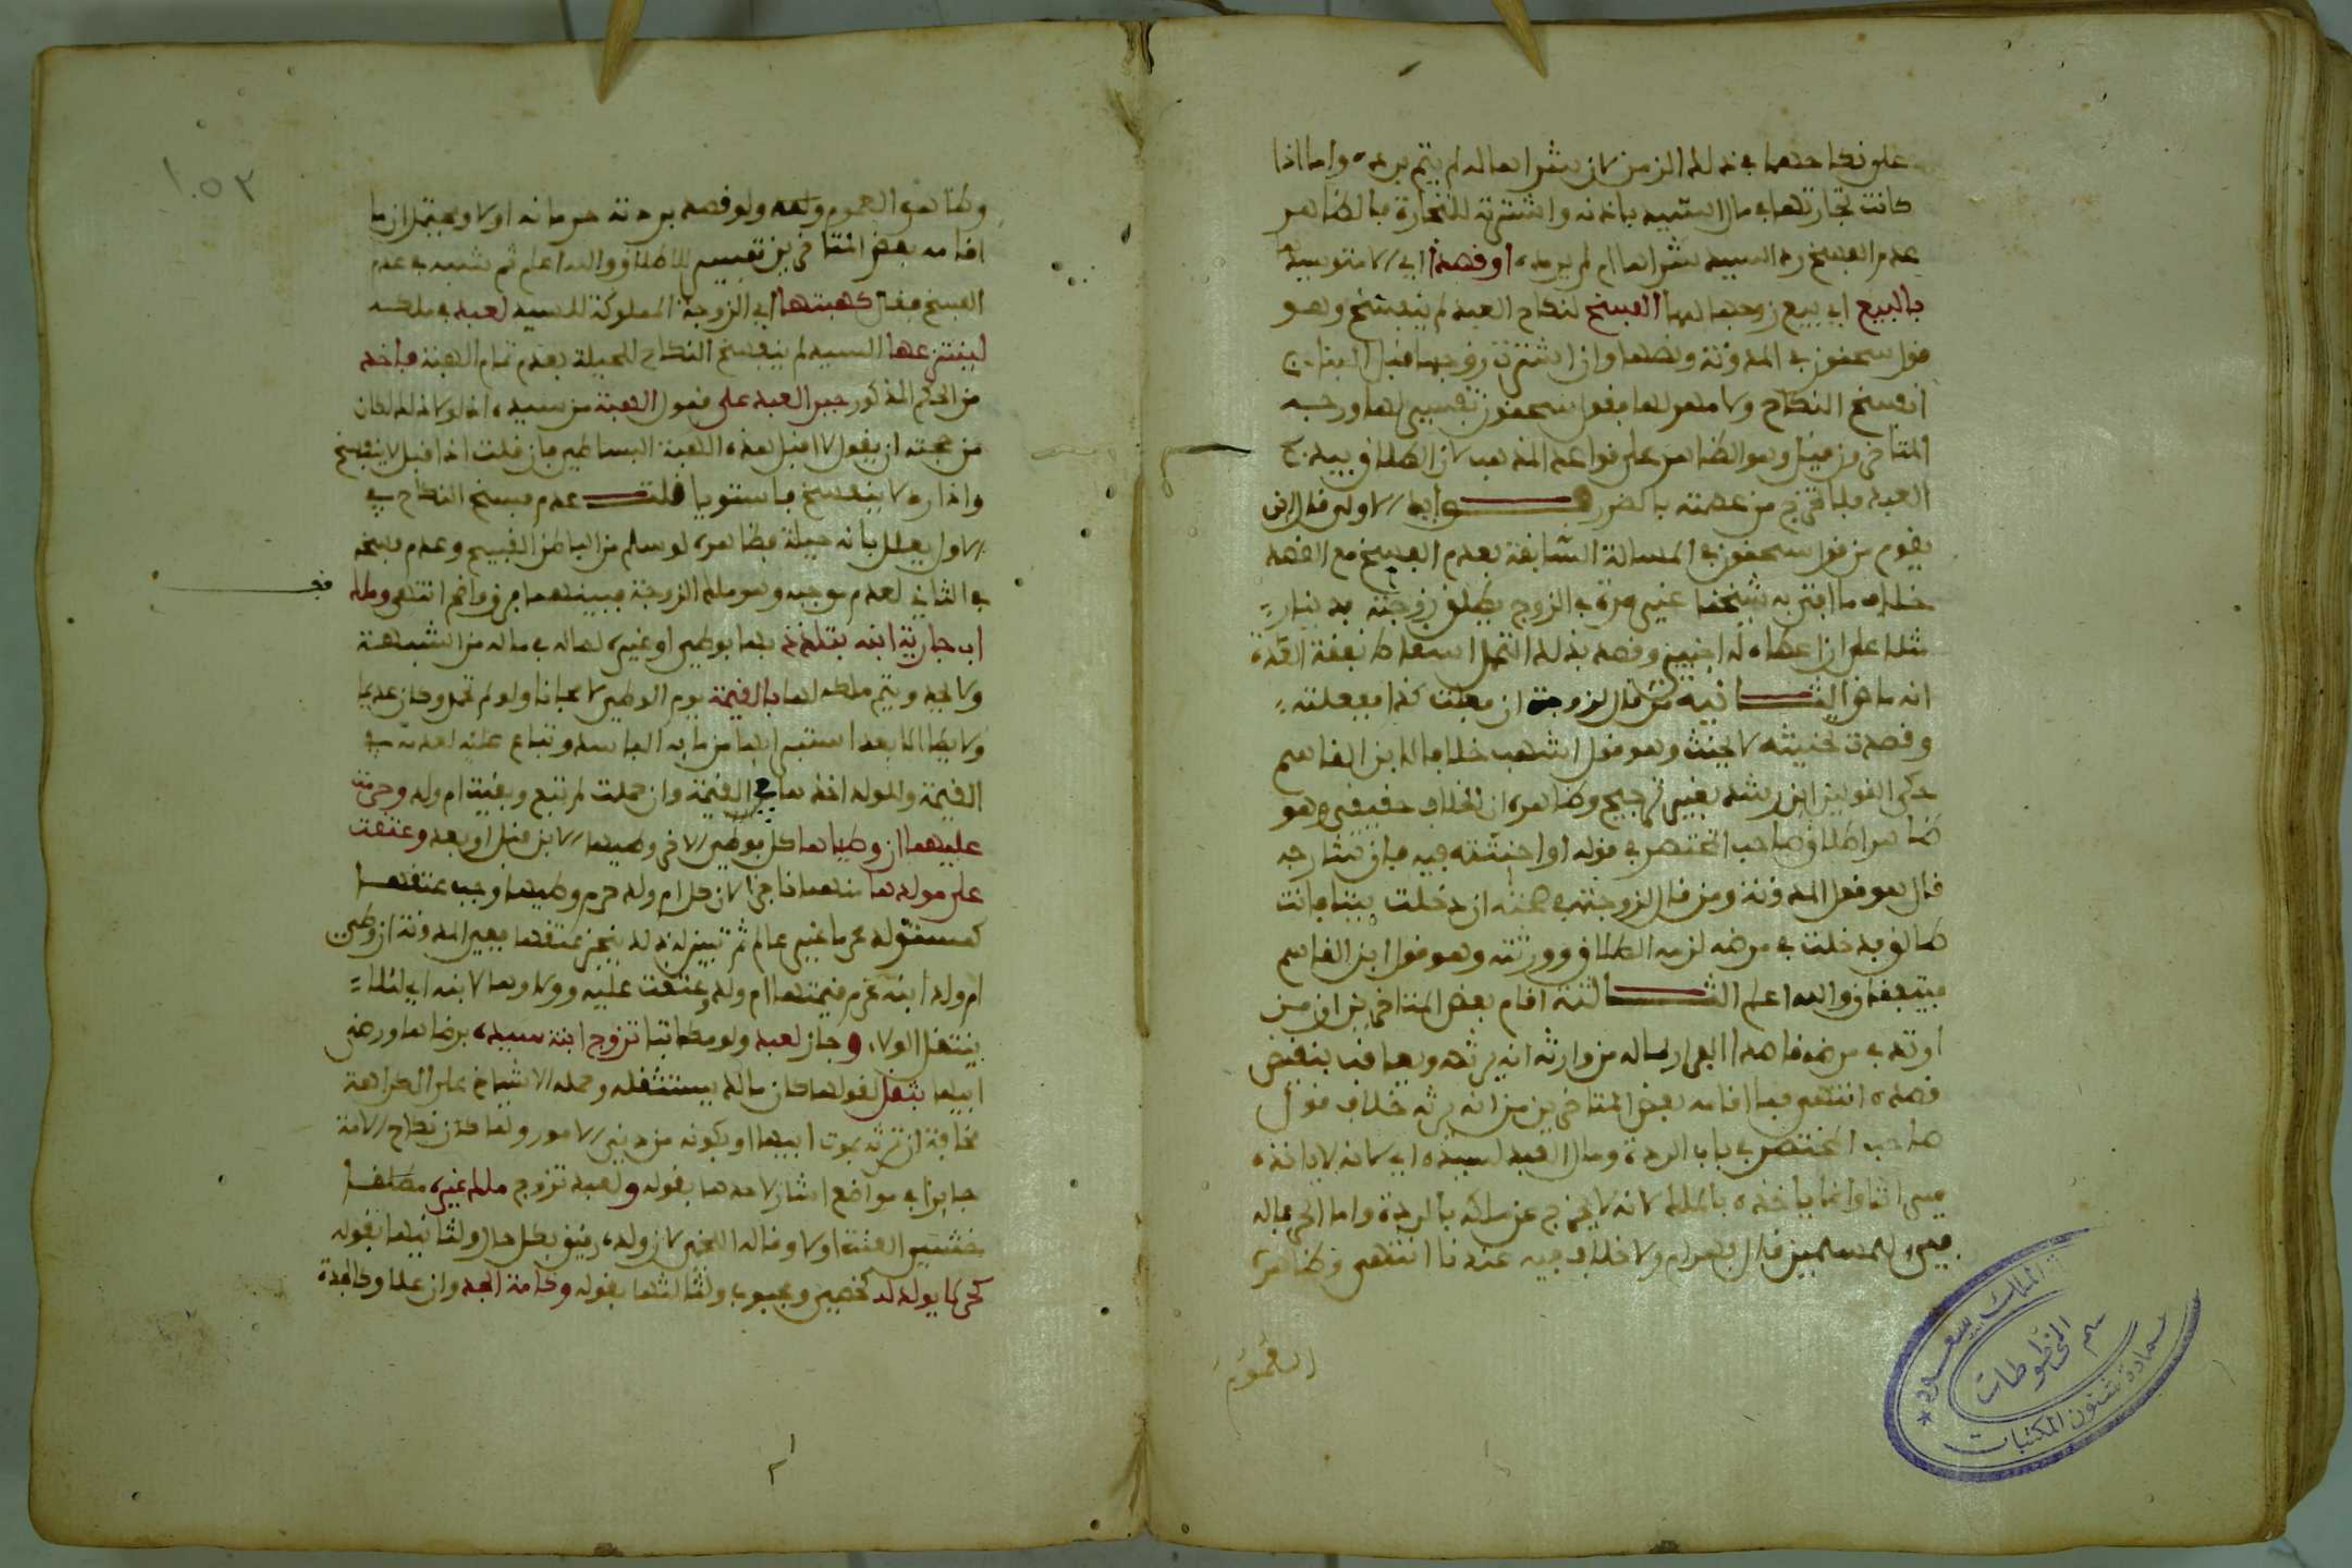 على نكاحهما في ذلك الزمن لان شراها له لم يتم برده واما اذا
كانت تجارتها في مال السيد باذنه واشترته للتجارة فالظاهر
عدم الفسخ رد السيد شراها ام لم يرده او قصدا اي لا متوسلا
بالبيع اي ببيع زوجها لها الفسخ لنكاح العبد لم ينفسخ وهو
قول سحنون في المدونة ونصها وان اشترت زوجها قبل البناء
انفسخ النكاح ولا مهر لها فقول سحنون تقسيم لها ورجـ
المتاخرون قيل وهو الظاهر على قواعد المذهب لان الطلاق بيد
العبد فلا تخرج من عصمته بالضرر فوايد الاولى قال ابن
يقوم من قول سحنون في المسالة السابقة بعدم الفسخ مع القصد
خلاف ما افتى به شيخنا غير مرة في الزوج يطلق زوجته بدينار
مثلا على ان اعطاه له اجنبي وقصد بذلك التحمل اسقاط نفقة العدة
انه ماض الثـانية من قال لزوجته ان فعلت كذا ففعلته
وقصدت تحنيثه لا يحنث وهو قول اشهب خلافا لابن القاسم
حكى القولين ابن رشد بغير ترجيح وظاهره ان الخلاف حقيقي وهو
ظاهر اطلاق صاحب المختصر في قوله او احنثته فيه قال شارحه
قال هو قول المدونة ومن قال لزوجته في صحته ان دخلت بيتا فانت
طالق فدخلت في مرضه لزمه الطلاق وورثته وهو قول ابن القاسم
فيتفقان والله اعلم الثـالثة اقام بعض المتاخرين ان من
ارتد في مرضه قاصدا الفرار بماله من وارثه انه يرثه ويعاقب بنقيض
قصده انتهى فما اقامه بعض المتاخرين من انه يرثه خلاف قول
صاحب المختصر في باب الردة ومال العبد لسيده اي لانه لا ياخذه
ميراثا وانما ياخذه بالملك لانه لا يخرج عن ملكه بالردة واما الحر فماله
فيء للمسلمين قال بهرام ولا خلاف فيه عندنا انتهى وظاهره
العموم
الملك سعود
المخطوطات
عمادة شئون المكتبات
١٠٥٣
وظاهره العموم ولعله ولو قصد بردته حرمانه اولا ويحتمل ان ما
اقامه بعض المتاخرين تقييد للاطلاق والله اعلم ثم شبه في عدم
الفسخ فقال كهبتها اي الزوجة المملوكة للسيد لعبد في ملكه
لينتزعها السيد لم ينفسخ النكاح للحيلة بعدم تمام الهبة فاخذ
من الحكم المذكور جبر العبد على قبول الهبة من سيده اذ لولا ذلك لكان
من حجته ان يقول لا اقبل هذه الهبة الباطلة فان قلت اذا قبل لا ينفسخ
واذا رد لا ينفسخ فاستويا قلت عدم فسخ النكاح في
الاول يعلل بانه حيلة فظاهره لو سلم من الباطن الفبيح وعدم فسخه
في الثاني لعدم موجبه وهو ملك الزوجة فبينهما فرق واضح انتهى وملك
اب جارية ابنه بتلذذ بها بوطء او غيره لما له في ماله من الشبهة
ولا يحد ويتم ملكه لها بالقيمة يوم الوطء لا مجانا ولو لم تحمل وكان عديما
ولا يطا الا بعد استبرايها من مايه الفاسد وتباع عليه لعدمه في
القيمة وللولد اخذها في القيمة وان حملت لم تبع وبقيت ام ولد وحرمت
عليهما ان وطياها كل بوطء الاخر وطيها الابن قبل او بعد وعتقت
على مولدها منهما ناجزا لان كل ام ولد حرم وطيها وجب عتقها
كمستولد محرما غير عالم ثم تبين له ذلك ينجز عتقها ففي المدونة ان وطي
ام ولد ابنه غرم قيمتها ام ولد وعتقت عليه وولاوها لابنه اي لئلا
ينتقل الولاء وجاز لعبد ولو مكاتبا تزوج ابنة سيده برضاها ورضى
ابيها بثقل لقولها كان مالك يستثقله وحمله الاشياخ على الكراهة
مخافة ان ترثه بموت ابيها او بكونه من دنيي الامور ولما كان نكاح الامة
جايزا في مواضع اشار لاحدها بقوله ولعبد تزوج ملك غيره مطلقا
خشي العنت اولا وقاله اللخمي لان ولده رقيق بكل حال ولثانيها بقوله
كحر لا يولد له كخصي ومجبوب ولثالثها بقوله وكامة الجد وان علا وكالجدة